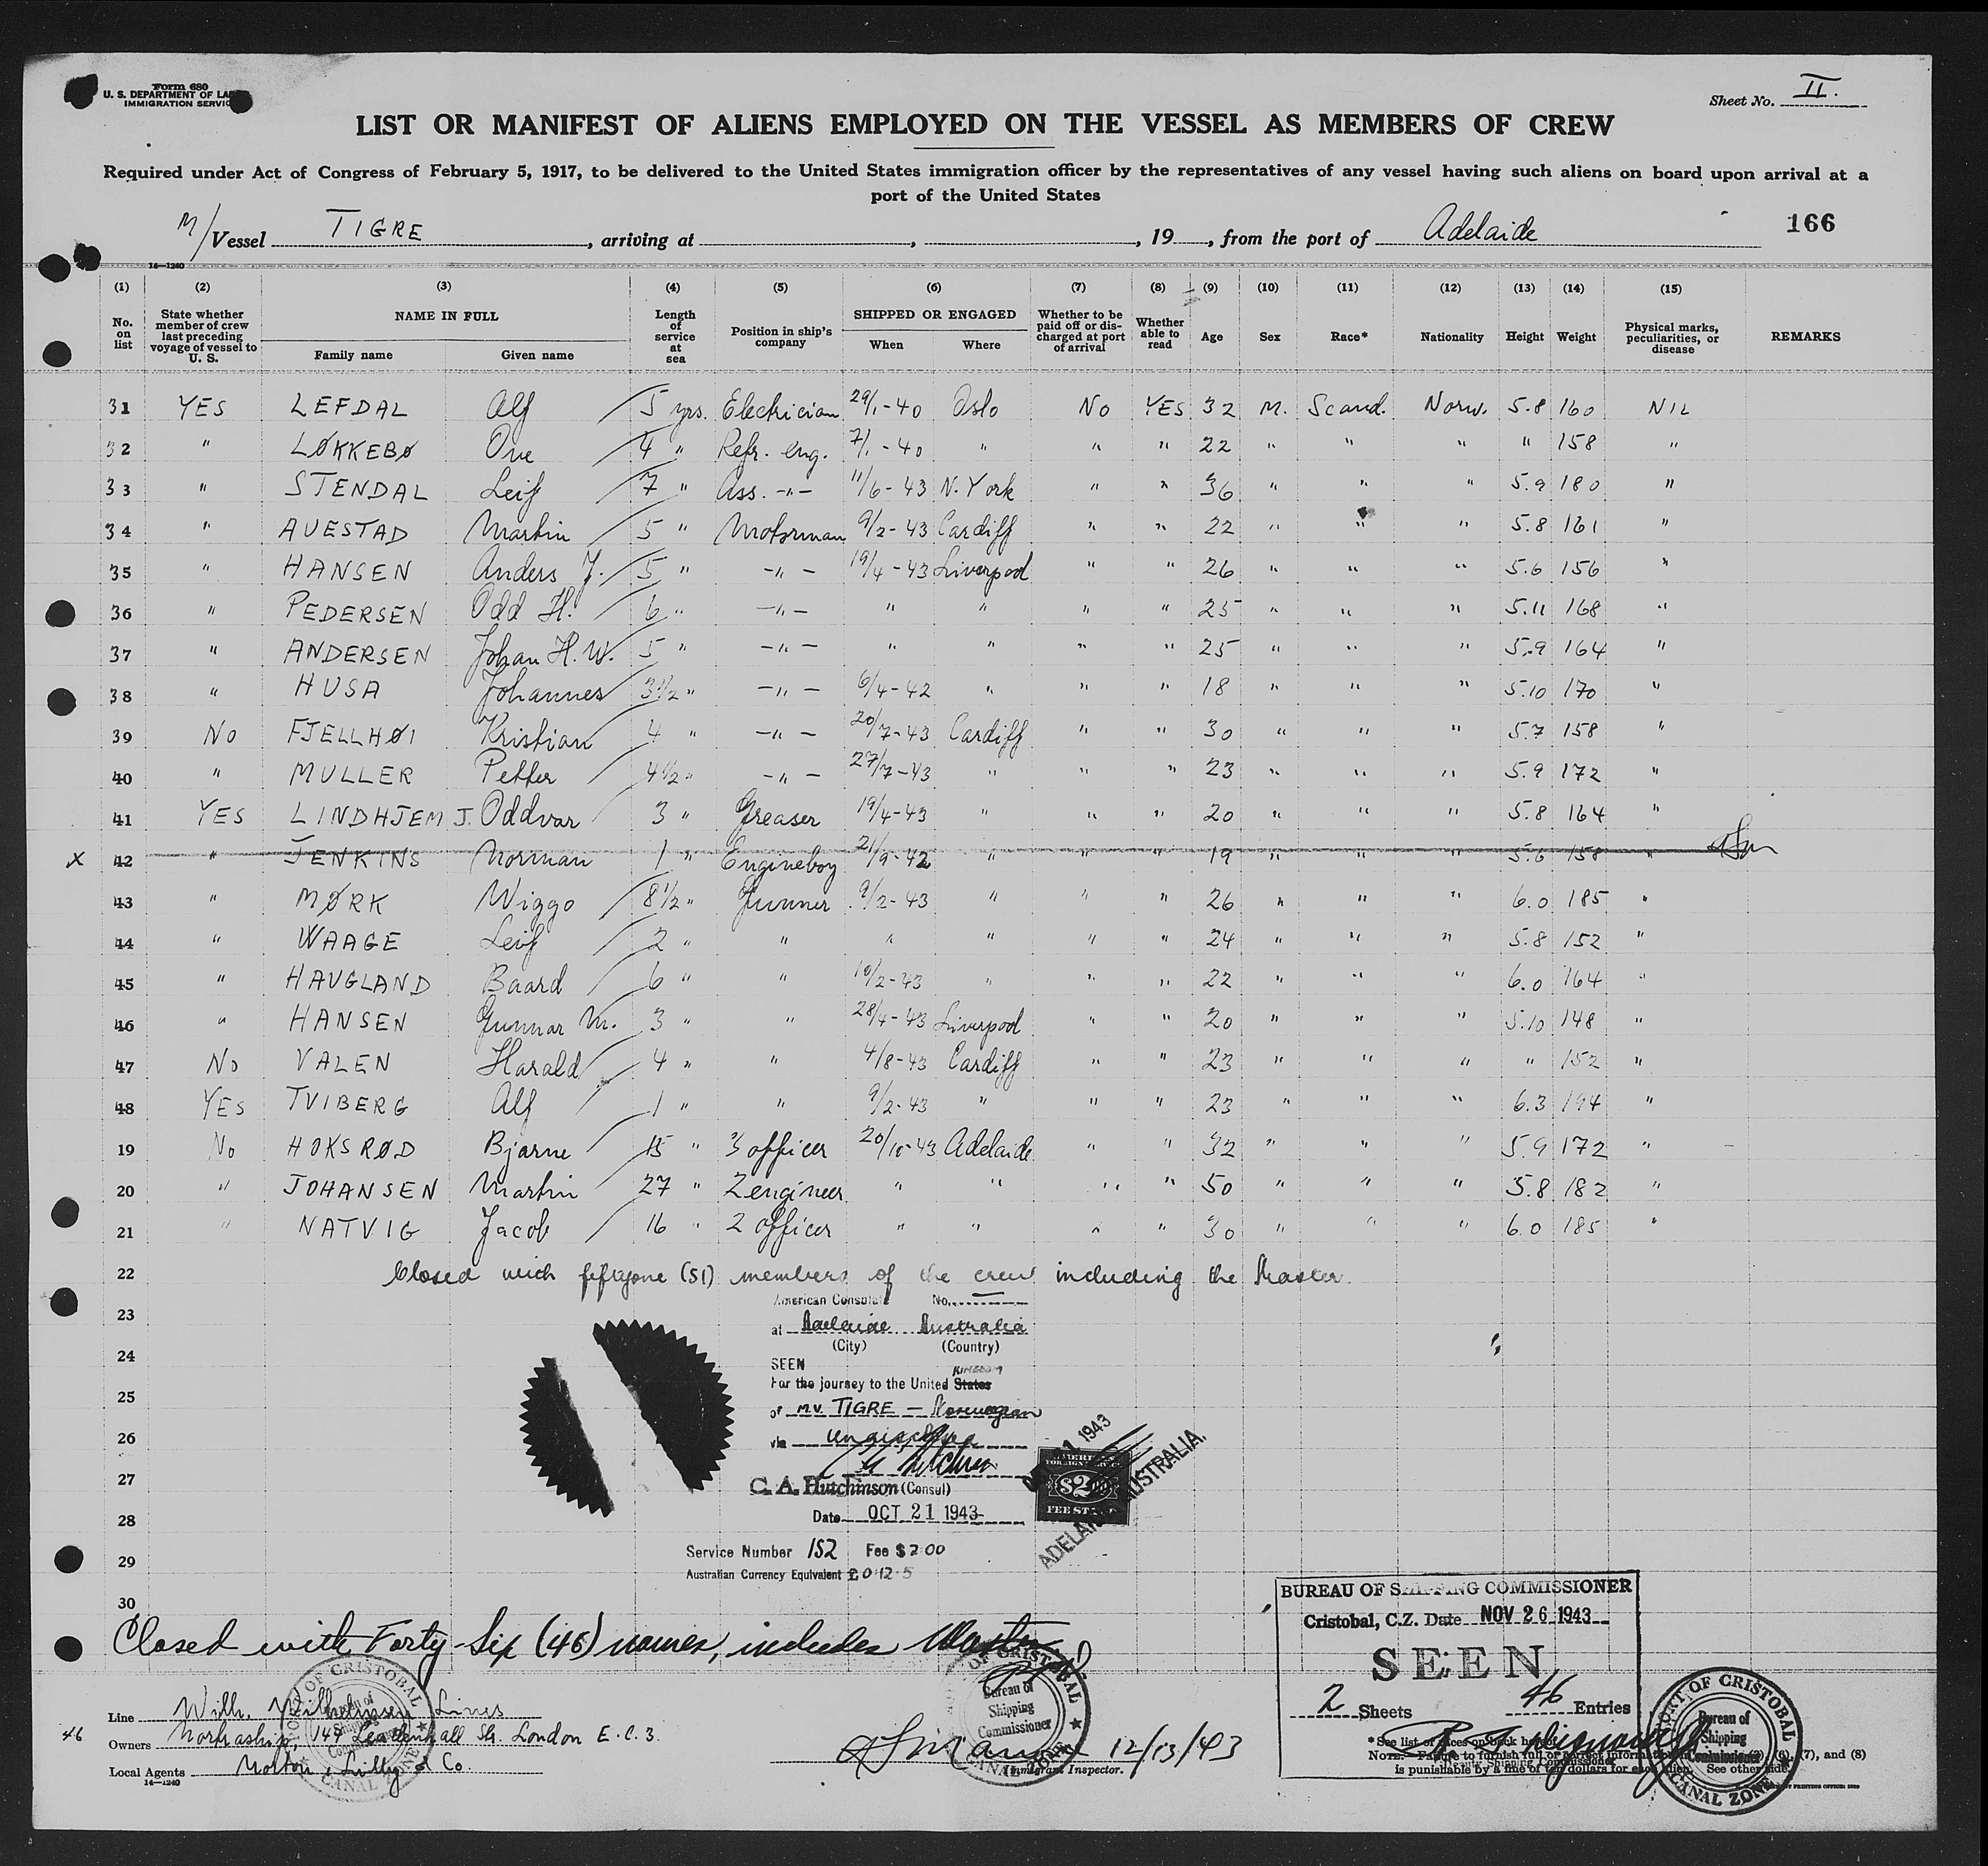 Form 680
U. S. DEPARTMENT OF LA
IMMIGRATION SERVIC
Sheet No. II.
LIST OR MANIFEST OF ALIENS EMPLOYED ON THE VESSEL AS MEMBERS OF CREW
Required under Act of Congress of February 5, 1917, to be delivered to the United States immigration officer by the representatives of any vessel having such aliens on board upon arrival at a
port of the United States
M/Vessel TIGRE, arriving at , , 19 , from the port of Adelaide 166
14—1240
(1) (2) (3) (4) (5) (6) (7) (8) (9) (10) (11) (12) (13) (14) (15)
No. on list State whether member of crew last preceding voyage of vessel to U. S. NAME IN FULL Family name Given name Length of service at sea Position in ship's company SHIPPED OR ENGAGED When Where Whether to be paid off or discharged at port of arrival Whether able to read Age Sex Race* Nationality Height Weight Physical marks, peculiarities, or disease REMARKS
31 YES LEFDAL Alf 5 yrs. Electrician 29/1-40 Oslo No YES 32 M. Scand. Norw. 5.8 160 NIL
32 " LØKKEBØ Ove 4 " Refr. eng. 7/1-40 " " " 22 " " " " 158 "
33 " STENDAL Leif 7 " Ass. -"- 11/6-43 N. York " " 36 " " " 5.9 180 "
34 " AUESTAD Martin 5 " Motorman 9/2-43 Cardiff " " 22 " " " 5.8 161 "
35 " HANSEN Anders J. 5 " -"- 19/4-43 Liverpool " " 26 " " " 5.6 156 "
36 " PEDERSEN Odd H. 6 " -"- " " " " 25 " " " 5.11 168 "
37 " ANDERSEN Johan H. W. 5 " -"- " " " " 25 " " " 5.9 164 "
38 " HUSA Johannes 3½ " -"- 6/4-42 " " " 18 " " " 5.10 170 "
39 No FJELLHØI Kristian 4 " -"- 20/7-43 Cardiff " " 30 " " " 5.7 158 "
40 " MULLER Petter 4½ " -"- 27/7-43 " " " 23 " " " 5.9 172 "
41 YES LINDHJEM J. Oddvar 3 " Greaser 19/4-43 " " " 20 " " " 5.8 164 "
x 42 " JENKINS Norman 1 " Engineboy 21/9-42 " " " 19 " " " 5.6 158 "
43 " MØRK Wiggo 8½ " Gunner 9/2-43 " " " 26 " " " 6.0 185 "
44 " WAAGE Leif 2 " " " " " " 24 " " " 5.8 152 "
45 " HAUGLAND Baard 6 " " 10/2-43 " " " 22 " " " 6.0 164 "
46 " HANSEN Gunnar M. 3 " " 28/4-43 Liverpool " " 20 " " " 5.10 148 "
47 No VALEN Harald 4 " " 4/8-43 Cardiff " " 23 " " " " 152 "
48 YES TVIBERG Alf 1 " " 9/2-43 " " " 23 " " " 6.3 194 "
19 No HOKSRØD Bjarne 15 " 3 officer 20/10-43 Adelaide " " 32 " " " 5.9 172 "
20 " JOHANSEN Martin 27 " 2 engineer " " " " 50 " " " 5.8 182 "
21 " NATVIG Jacob 16 " 2 officer " " " " 30 " " " 6.0 185 "
22 Closed with fiftyone (51) members of the crew including the Master.
American Consulate No.
23
at Adelaide Australia
(City) (Country)
24
SEEN
KINGDOM
For the journey to the United States
25
of M.V. TIGRE — Norwegian
26
via
27
C. A. Hutchinson (Consul)
Date OCT 21 1943
28
1943
AMERICAN FOREIGN SERVICE $2.00 FEE STAMP
ADELAIDE, AUSTRALIA.
Service Number 152 Fee $2.00
29
Australian Currency Equivalent £0-12-5
30
Closed with Forty-Six (46) names, includes Master
BUREAU OF SHIPPING COMMISSIONER
Cristobal, C.Z. Date NOV 26 1943
SEEN
2 Sheets 46 Entries
Deputy Shipping Commissioner
PORT OF CRISTOBAL Bureau of Shipping Commissioner CANAL ZONE
PORT OF CRISTOBAL Bureau of Shipping Commissioner CANAL ZONE
PORT OF CRISTOBAL Bureau of Shipping Commissioner CANAL ZONE
Line Wilh. Wilhelmsen Lines
46 Owners Nortraship, 144 Leadenhall Str. London E.C.3.
Local Agents Norton, Lilly & Co.
14—1240
12/13/43
Immigrant Inspector.
*See list of races on back hereof.
Note.—Failure to furnish full or correct information (6), (7), and (8)
is punishable by a fine of ten dollars for each alien. See other side.